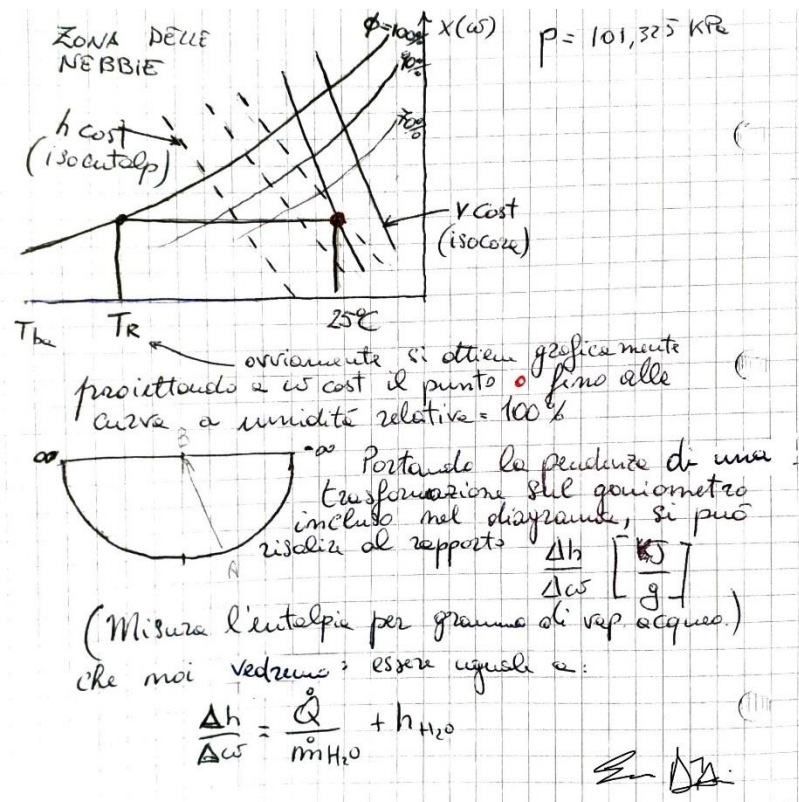 ZONA DELLE
NEBBIE
ϕ=100%
X(ω)
p= 101,325 KPa
90%
70%
h cost
(isoentalp)
v cost
(isocore)
Tba
TR
25°C
ovviamente si ottiene graficamente
proiettando a ω cost il punto • fino alla
curva a umidità relativa = 100%
∞
B
-∞
Portando la pendenza di una
trasformazione sul goniometro
incluso nel diagramma, si può
risalire al rapporto Δh/Δω [KJ/g]
A
(Misura l'entalpia per grammo di vap. acqueo.)
che noi vedremo: essere uguale a:
Δh/Δω = Q̊/m̊H₂O + hH₂O